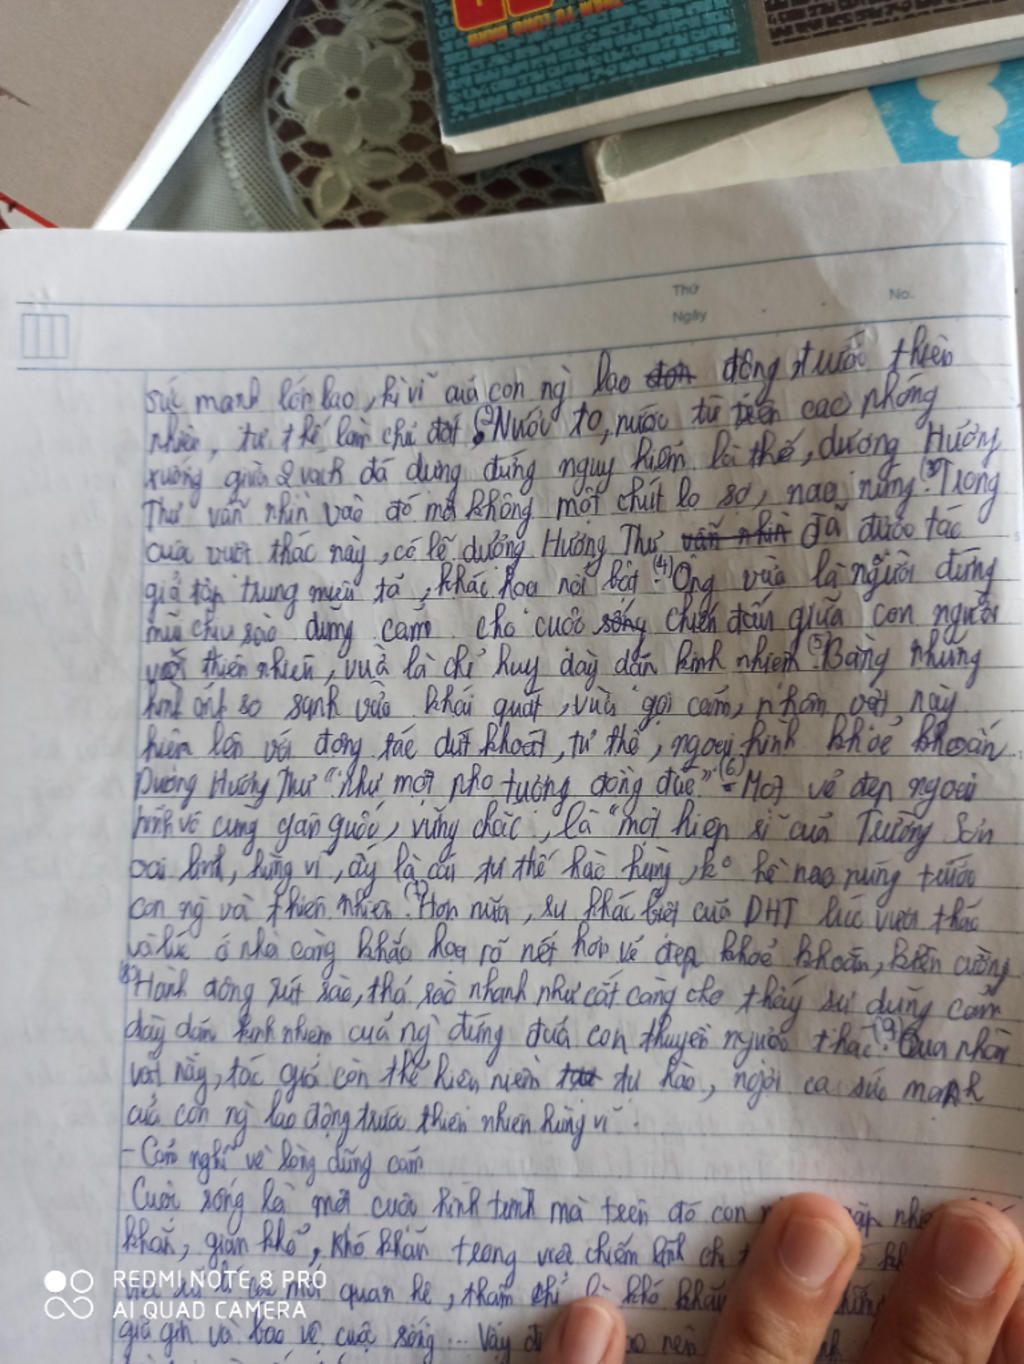 Thứ
No.
Ngày
sức mạnh lớn lao, kì vĩ của con ng` lao động trước thiên
nhiên, tư thế làm chủ đất (2) Nước to, nước từ trên cao phóng
xuống giữa 2 vách đá dựng đứng nguy hiểm là thế, dượng Hương
Thư vẫn nhìn vào đó mà không một chút lo sợ, nao núng. (3) Trong
cuộc vượt thác này, có lẽ dượng Hương Thư đã được tác
giả tập trung miêu tả, khắc họa nổi bật. (4) Ông vừa là người đứng
mũi chịu sào dũng cảm cho cuộc chiến đấu giữa con người
với thiên nhiên, vừa là chỉ huy dày dặn kinh nhiệm (5) Bằng những
hình ảnh so sánh vừa khái quát, vừa gợi cảm, nhân vật này
hiện lên với động tác dứt khoát, tư thế, ngoại hình khỏe khoắn
Dượng Hương Thư "như một pho tượng đồng đúc" (6) Một vẻ đẹp ngoại
hình vô cùng gân guốc, vững chắc, là "một hiệp sĩ của Trường Sơn
oai linh, hùng vĩ, ấy là cái tư thế hào hùng, ko hề nao núng trước
con ng` và thiên nhiên. (7) Hơn nữa, sự khác biệt của DHT lúc vượt thác
và lúc ở nhà càng khắc họa rõ nét hơn vẻ đẹp khoẻ khoắn, kiên cường
(8) Hành động rút sào, thả sào nhanh như cắt càng cho thấy sự dũng cảm
dày dặn kinh nhiệm của ng` đứng đưa con thuyền ngược thác. (9) Qua nhân
vật này, tác giả còn thể hiện niềm tự hào, ngợi ca sức mạnh
của con ng` lao động trước thiên nhiên hùng vĩ.
- Cảm nghĩ về lòng dũng cảm
Cuộc sống là một cuộc hành trình mà trên đó con
khăn, gian khổ, khó khăn trong việc chiếm lĩnh
mối quan hệ, thậm chí là khó khăn
giữ gìn và bảo vệ cuộc sống... Vậy
REDMI NOTE 8 PRO
AI QUAD CAMERA